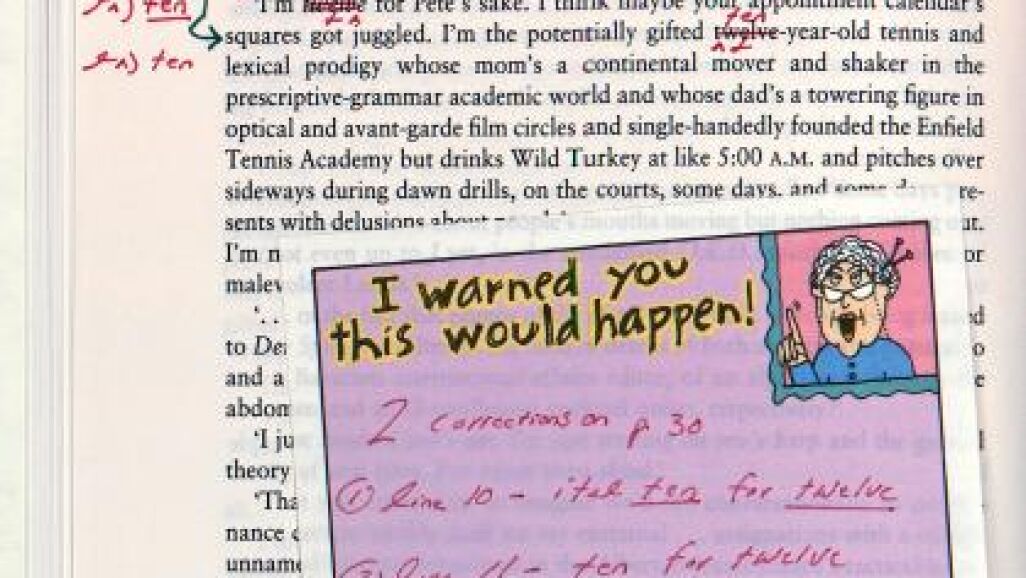 ten
ten
'I'm for Pete's sake. I think maybe your appointment calendar's
ten
squares got juggled. I'm the potentially gifted twelve-year-old tennis and
lexical prodigy whose mom's a continental mover and shaker in the
prescriptive-grammar academic world and whose dad's a towering figure in
optical and avant-garde film circles and single-handedly founded the Enfield
Tennis Academy but drinks Wild Turkey at like 5:00 A.M. and pitches over
sideways during dawn drills, on the courts, some days, and some days pre-
sents with delusions about people's mouths moving but nothing
I'm n
malev
'. .
to De
and a
abdom
'I ju
theory
'Tha
nance
unname
I warned you
this would happen!
2 corrections on p 30
① line 10 - ital ten for twelve
② line 11 - ten for twelve